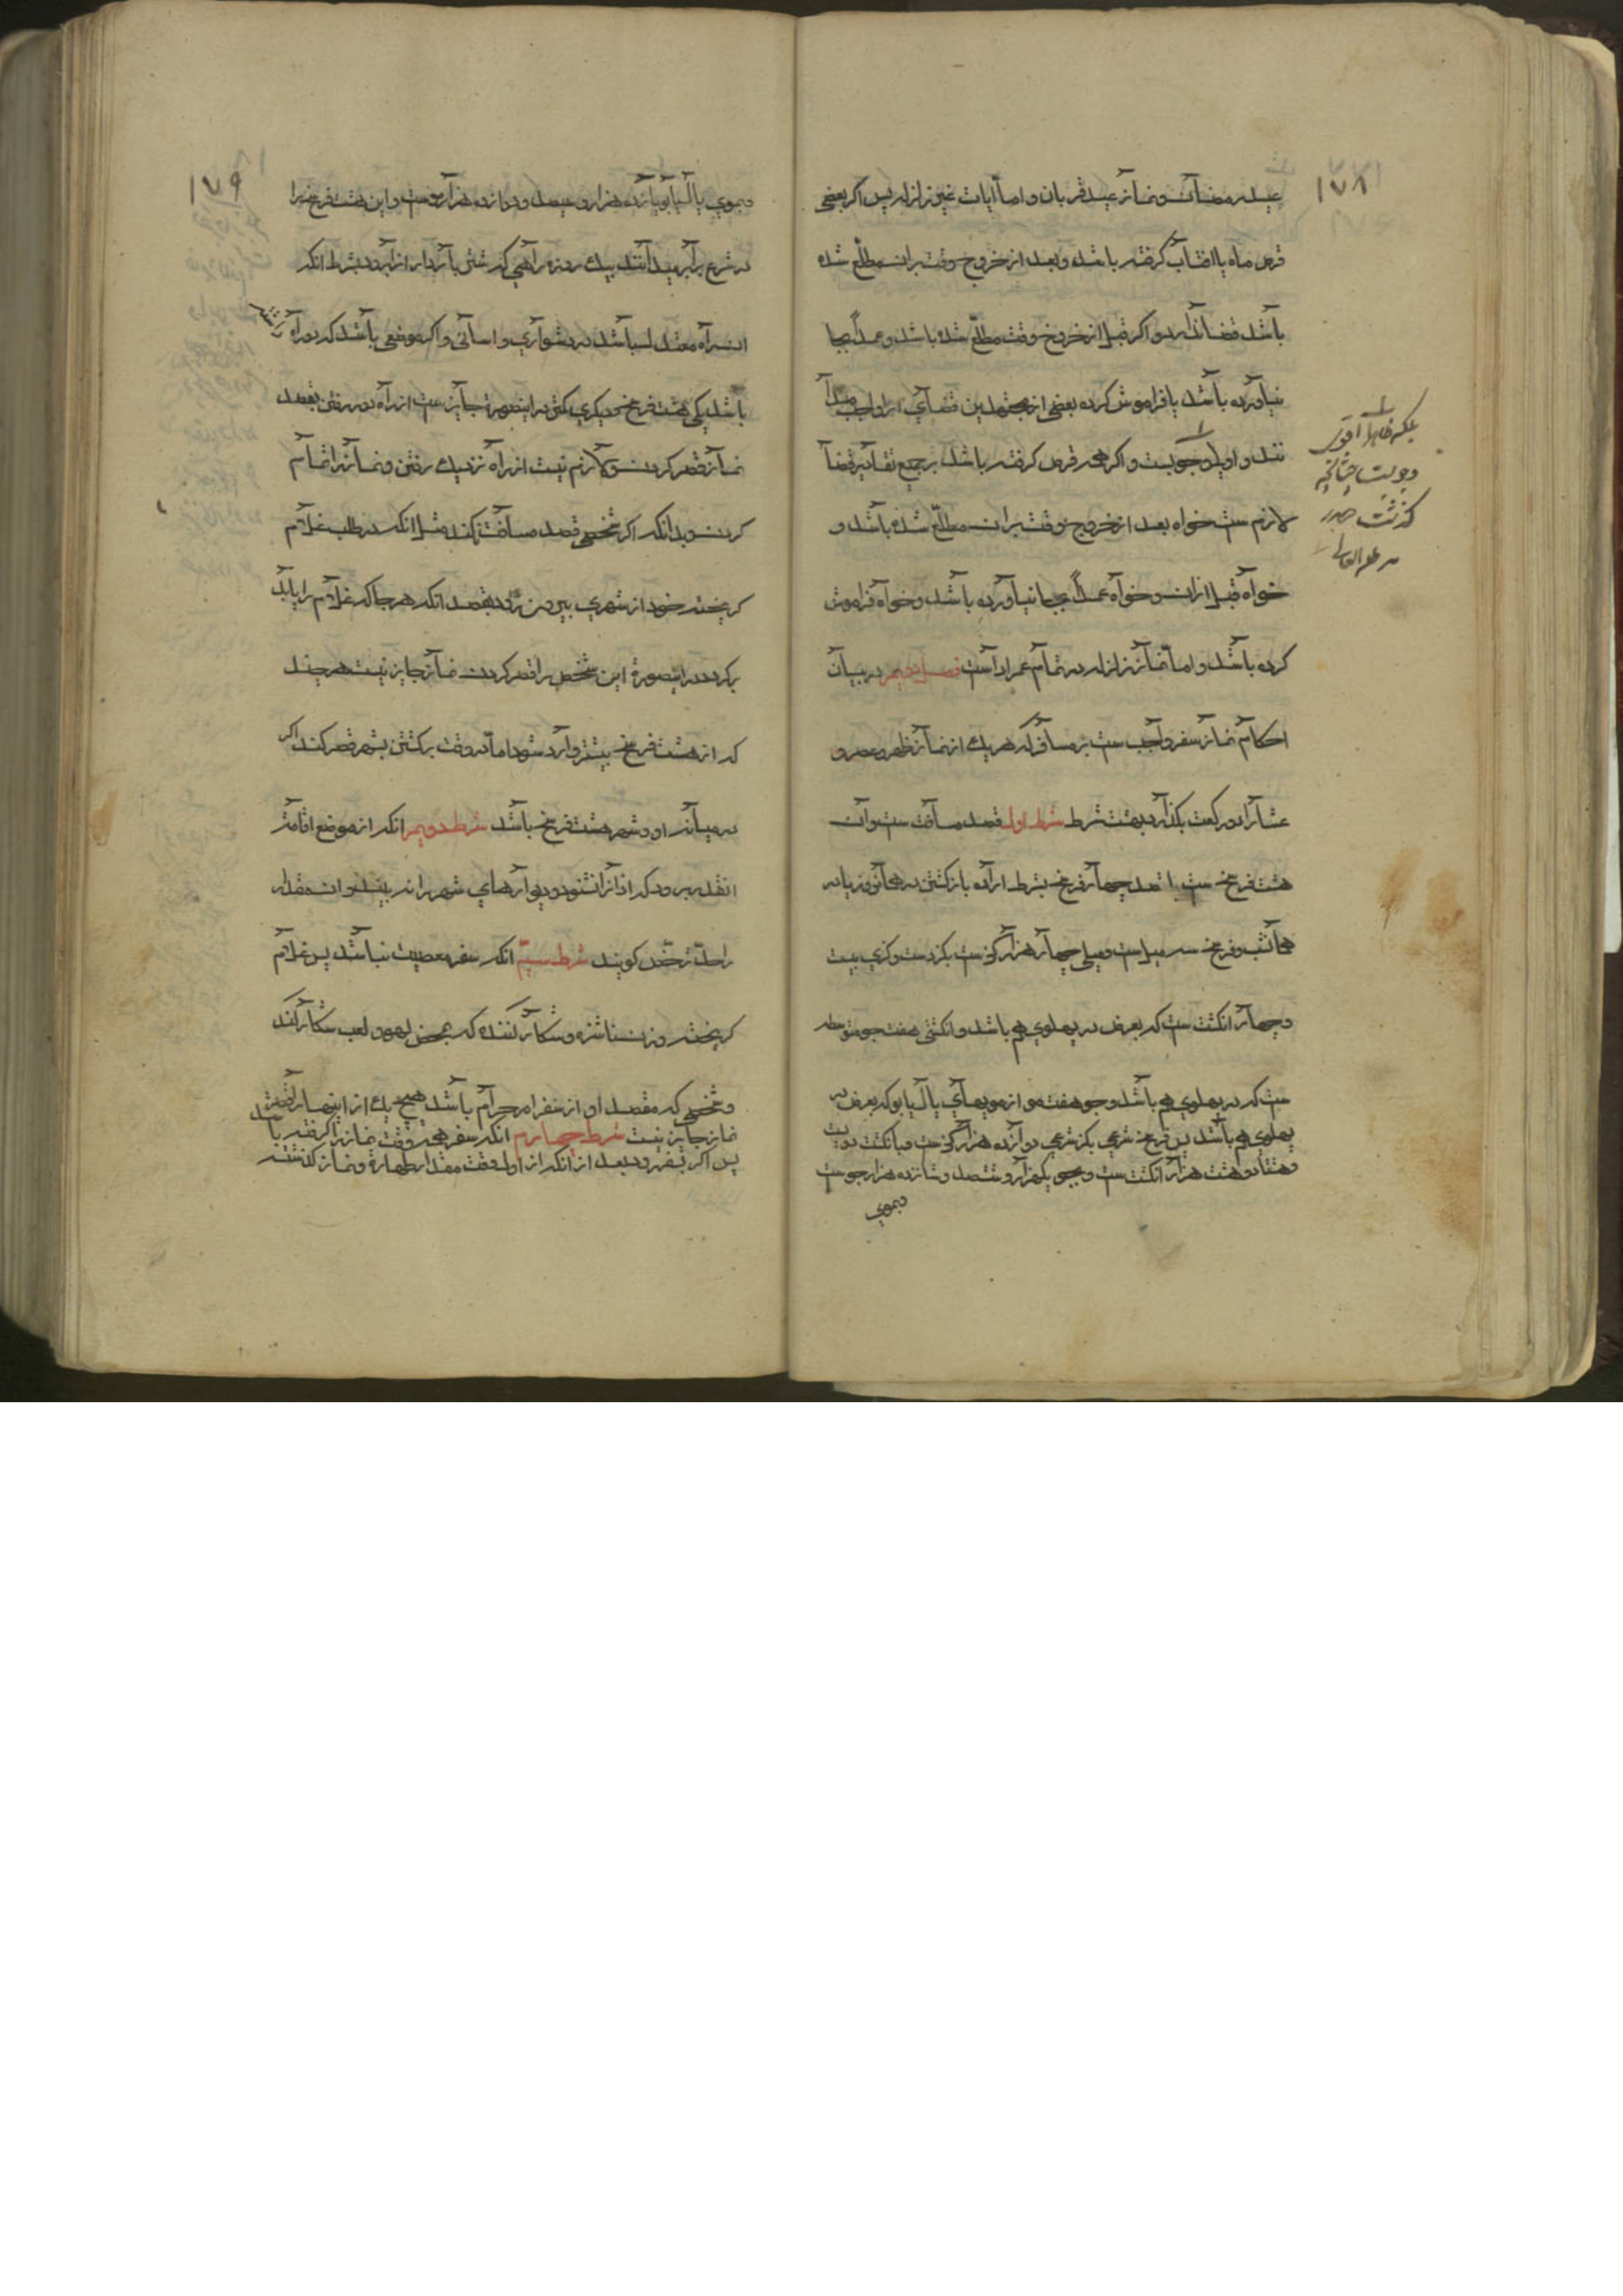 ۱۷۸
عید رمضان و نماز عید قربان و اما آیات غیر زلزله پس اکر بعضی
قرص ماه یا افتاب کرفته باشد و بعد از خروج وقت بران مطلع شده
باشد قضا ندارد و اکر قبل از خروج وقت مطلع شده باشد و عمداً بجا
نیاورده باشد یا فراموش کرده بعضی از مجتهدین قضای انرا واجب
و اولی وجوبست و اکر همه قرص کرفته باشد بر جمیع تقادیر قضا
لازم ست خواه بعد از خروج وقت بران مطلع شده باشد و
خواه قبل از ان و خواه عمداً بجا نیاورده باشد و خواه فراموش
کرده باشد و اما نماز زلزله در تمام عمر ادا است فصل در بیان
احکام نماز سفر واجب ست بر مسافر که هر یک از نماز ظهر و عصر و
عشا را دو رکعت بکذارد بهشت شرط شرط اول قصد مسافت ست و ان
هشت فرسخ ست با قصد چهار فرسخ بشرط اراده بازکشتن در همانروز یا در
همانشب و فرسخ سه میل ست و میلی چهار هزار کز ست بکز دست و کزی بیست
و چهار انکشت ست که بعرض در پهلوی هم باشد و انکشتی هفت جو متوسط
ست که در پهلوی هم باشد و جو هفت مو از مویهای یال یابو که بعرض در
پهلوی هم باشد پس فرسخ شرعی بکز شرعی دوازده هزار کز ست و بانکشت دویست
و هشتاد و هشت هزار انکشت ست و بجو یکهزار و شصد و شانزده هزار جو ست
و بموی
بلکه ظاهرا اقوی
وجوبست چنانچه
کذشت صدر
مد ظله العالی
۱۷۹
و بموی یال یابو یازده هزار و سیصد و دوازده هزار موست و این هشت فرسخ را
در شرع برابر میدانند بیک روزه راهی که شتر بار دار انرا برود بشرط انکه
ان راه معتدل باشد در دشواری و اسانی و اکر موضعی باشد که دو راه داشته
باشد یکی هشت فرسخ و دیکری کمتر در اینصورة جایز ست از راه دور رفتن بقصد
نماز قصر کردن و لازم نیست از راه نزدیک رفتن و نماز را تمام
کردن و بدانکه اکر شخصی قصد مسافت نکند مثل انکه در طلب غلام
کریخته خود از شهری بیرون رود بقصد انکه هر جا که غلام را یابد
برکردد در اینصورة این شخص را قصر کردن نماز جایز نیست هر چند
که از هشت فرسخ بیشتر وارد شود اما در وقت برکشتن بشهر قصر کند اکر
در میانه او و شهر هشت فرسخ باشد شرط دویم انکه از موضع اقامت
انقدر برود که اذان را نشنود و دیوارهای شهر را نه بیند و ان مقدار
را حد ترخص کویند شرط سیم انکه سفر معصیت نباشد پس غلام
کریخته و زن ناشزه و شکار کننده که بمحض لهو و لعب شکار کند
و شخصی که مقصد او از سفر امر حرام باشد هیچ یک از اینها را قصر
نماز جایز نیست شرط چهارم انکه سفر همه وقت نماز را کرفته باشد
پس اکر بسفر رود بعد از انکه از اول وقت مقدار طهارة و نماز کذشته